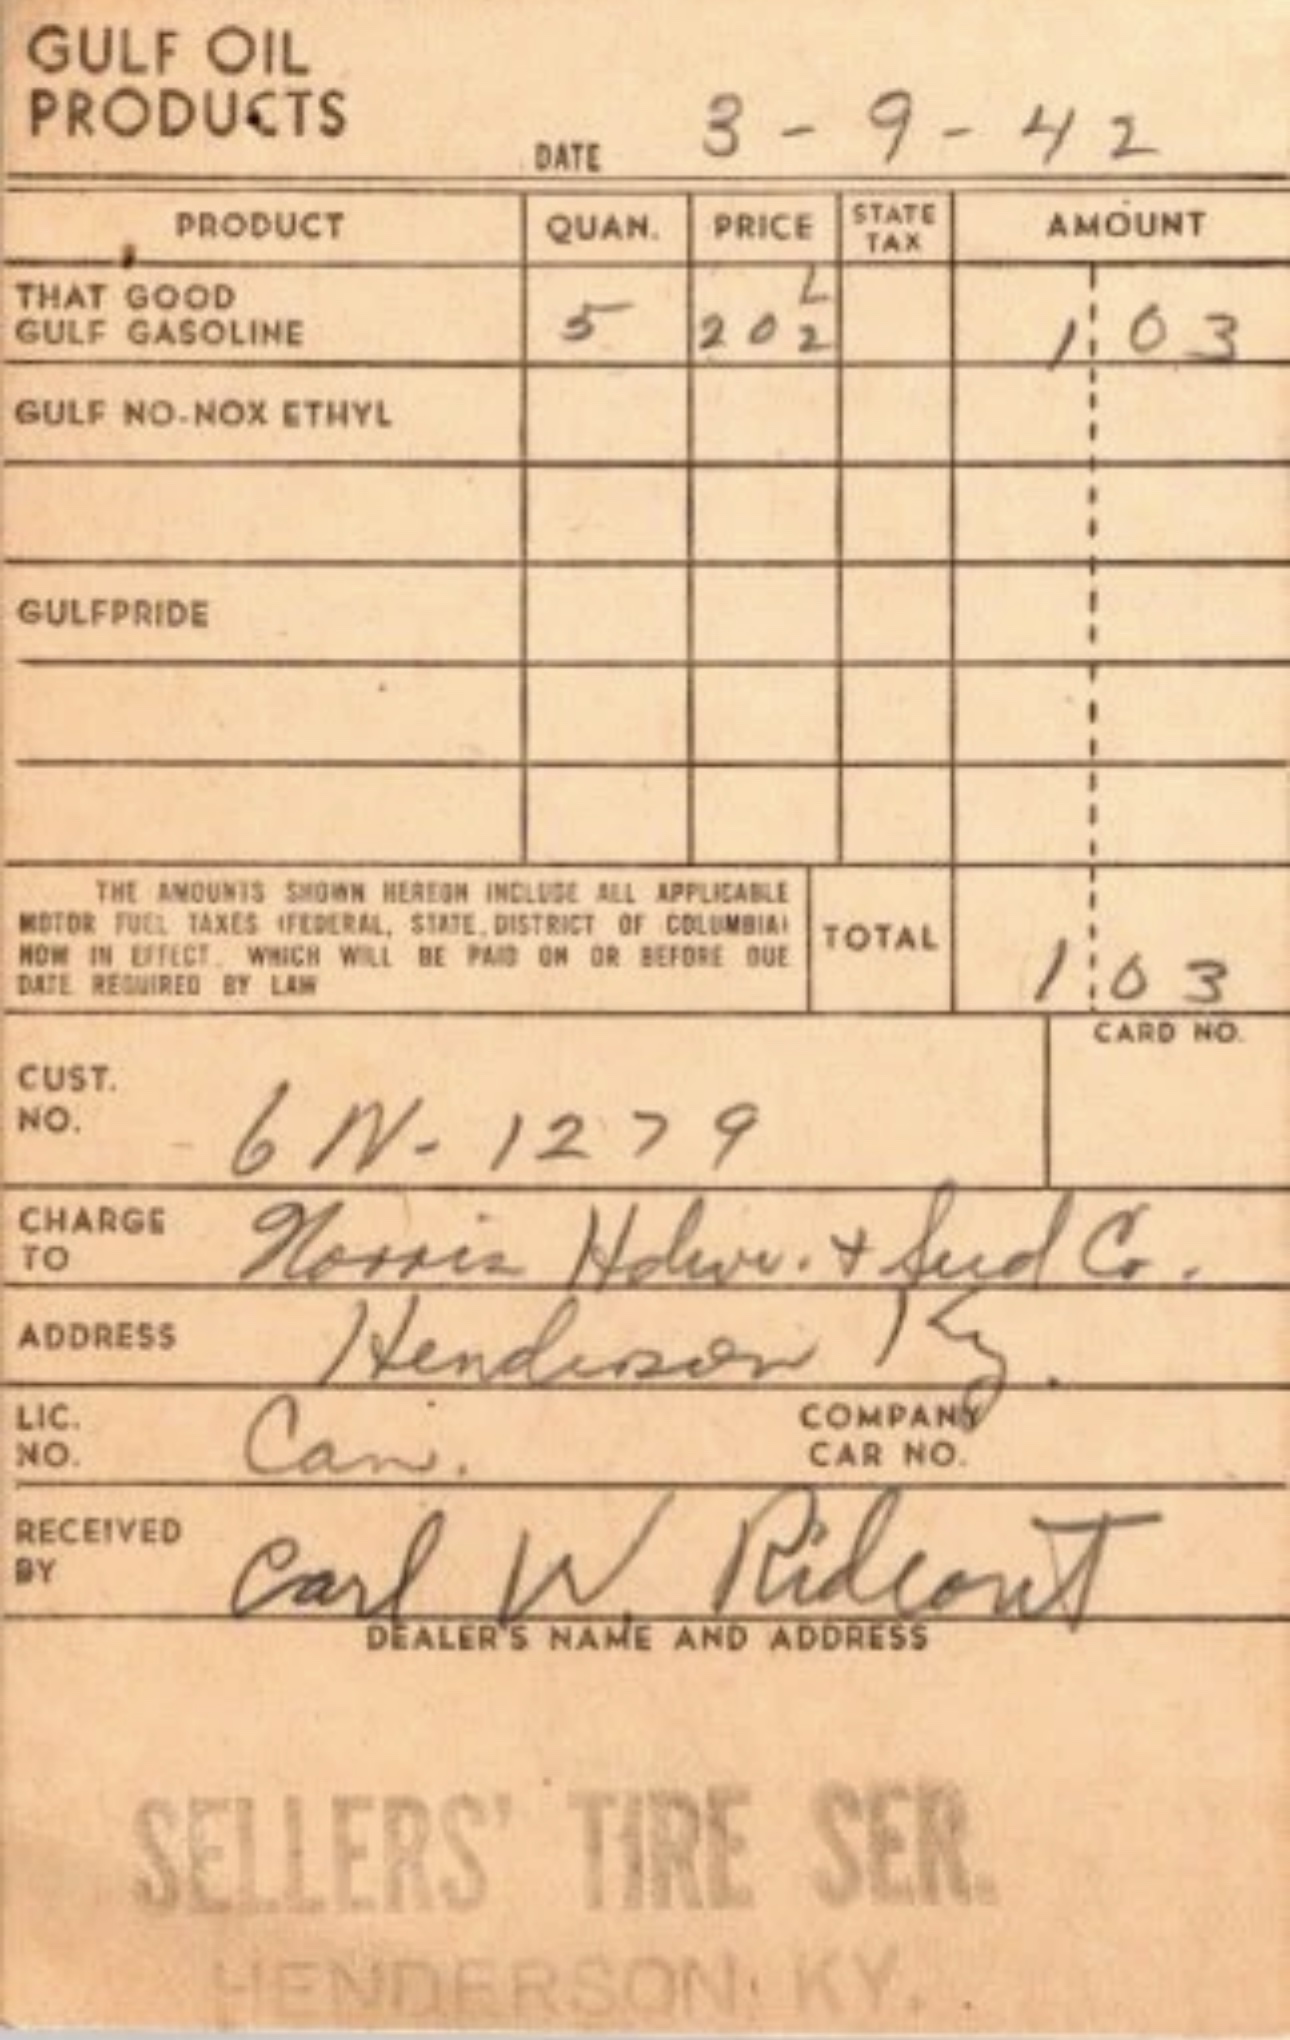 GULF OIL
PRODUCTS
DATE 3-9-42
PRODUCT QUAN. PRICE STATE TAX AMOUNT
THAT GOOD
GULF GASOLINE 5 20 1 03
GULF NO-NOX ETHYL
GULFPRIDE
THE AMOUNTS SHOWN HEREON INCLUDE ALL APPLICABLE
MOTOR FUEL TAXES (FEDERAL, STATE, DISTRICT OF COLUMBIA)
NOW IN EFFECT, WHICH WILL BE PAID ON OR BEFORE DUE
DATE REQUIRED BY LAW
TOTAL 1 03
CARD NO.
CUST.
NO. 6N-1279
CHARGE
TO Norris Hdwr. + Co.
ADDRESS Henderson Ky.
LIC.
NO. Can. COMPANY
CAR NO.
RECEIVED
BY Carl W. Rideout
DEALER'S NAME AND ADDRESS
SELLERS' TIRE SER.
HENDERSON, KY.